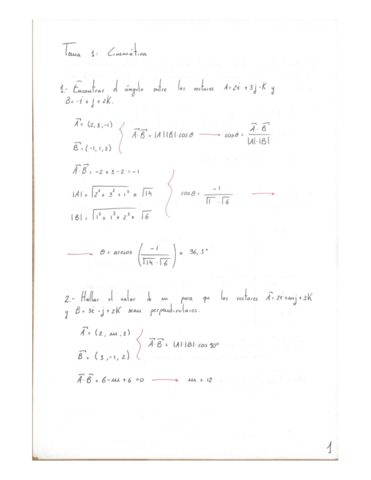 Tema 1: Cinemática
1.- Encontrar el ángulo entre los vectores A=2i+3j-K y
B=-i+j+2K.
A⃗=(2,3,-1)
B⃗=(-1,1,2)
A⃗·B⃗=|A|·|B|·cosθ → cosθ= A⃗·B⃗ / |A|·|B|
A⃗·B⃗=-2+3-2=-1
|A|=√2²+3²+1²=√14
|B|=√1²+1²+2²=√6
cosθ= -1 / √14·√6 →
→ θ=arccos(-1 / √14·√6)= 96,3°
2.- Hallar el valor de m para que los vectores A⃗=2i+mj+3K
y B=3i-j+2K sean perpendiculares.
A⃗=(2,m,3)
B⃗=(3,-1,2)
A⃗·B⃗=|A|·|B|·cos 90°
A⃗·B⃗=6-m+6=0 → m=12
1